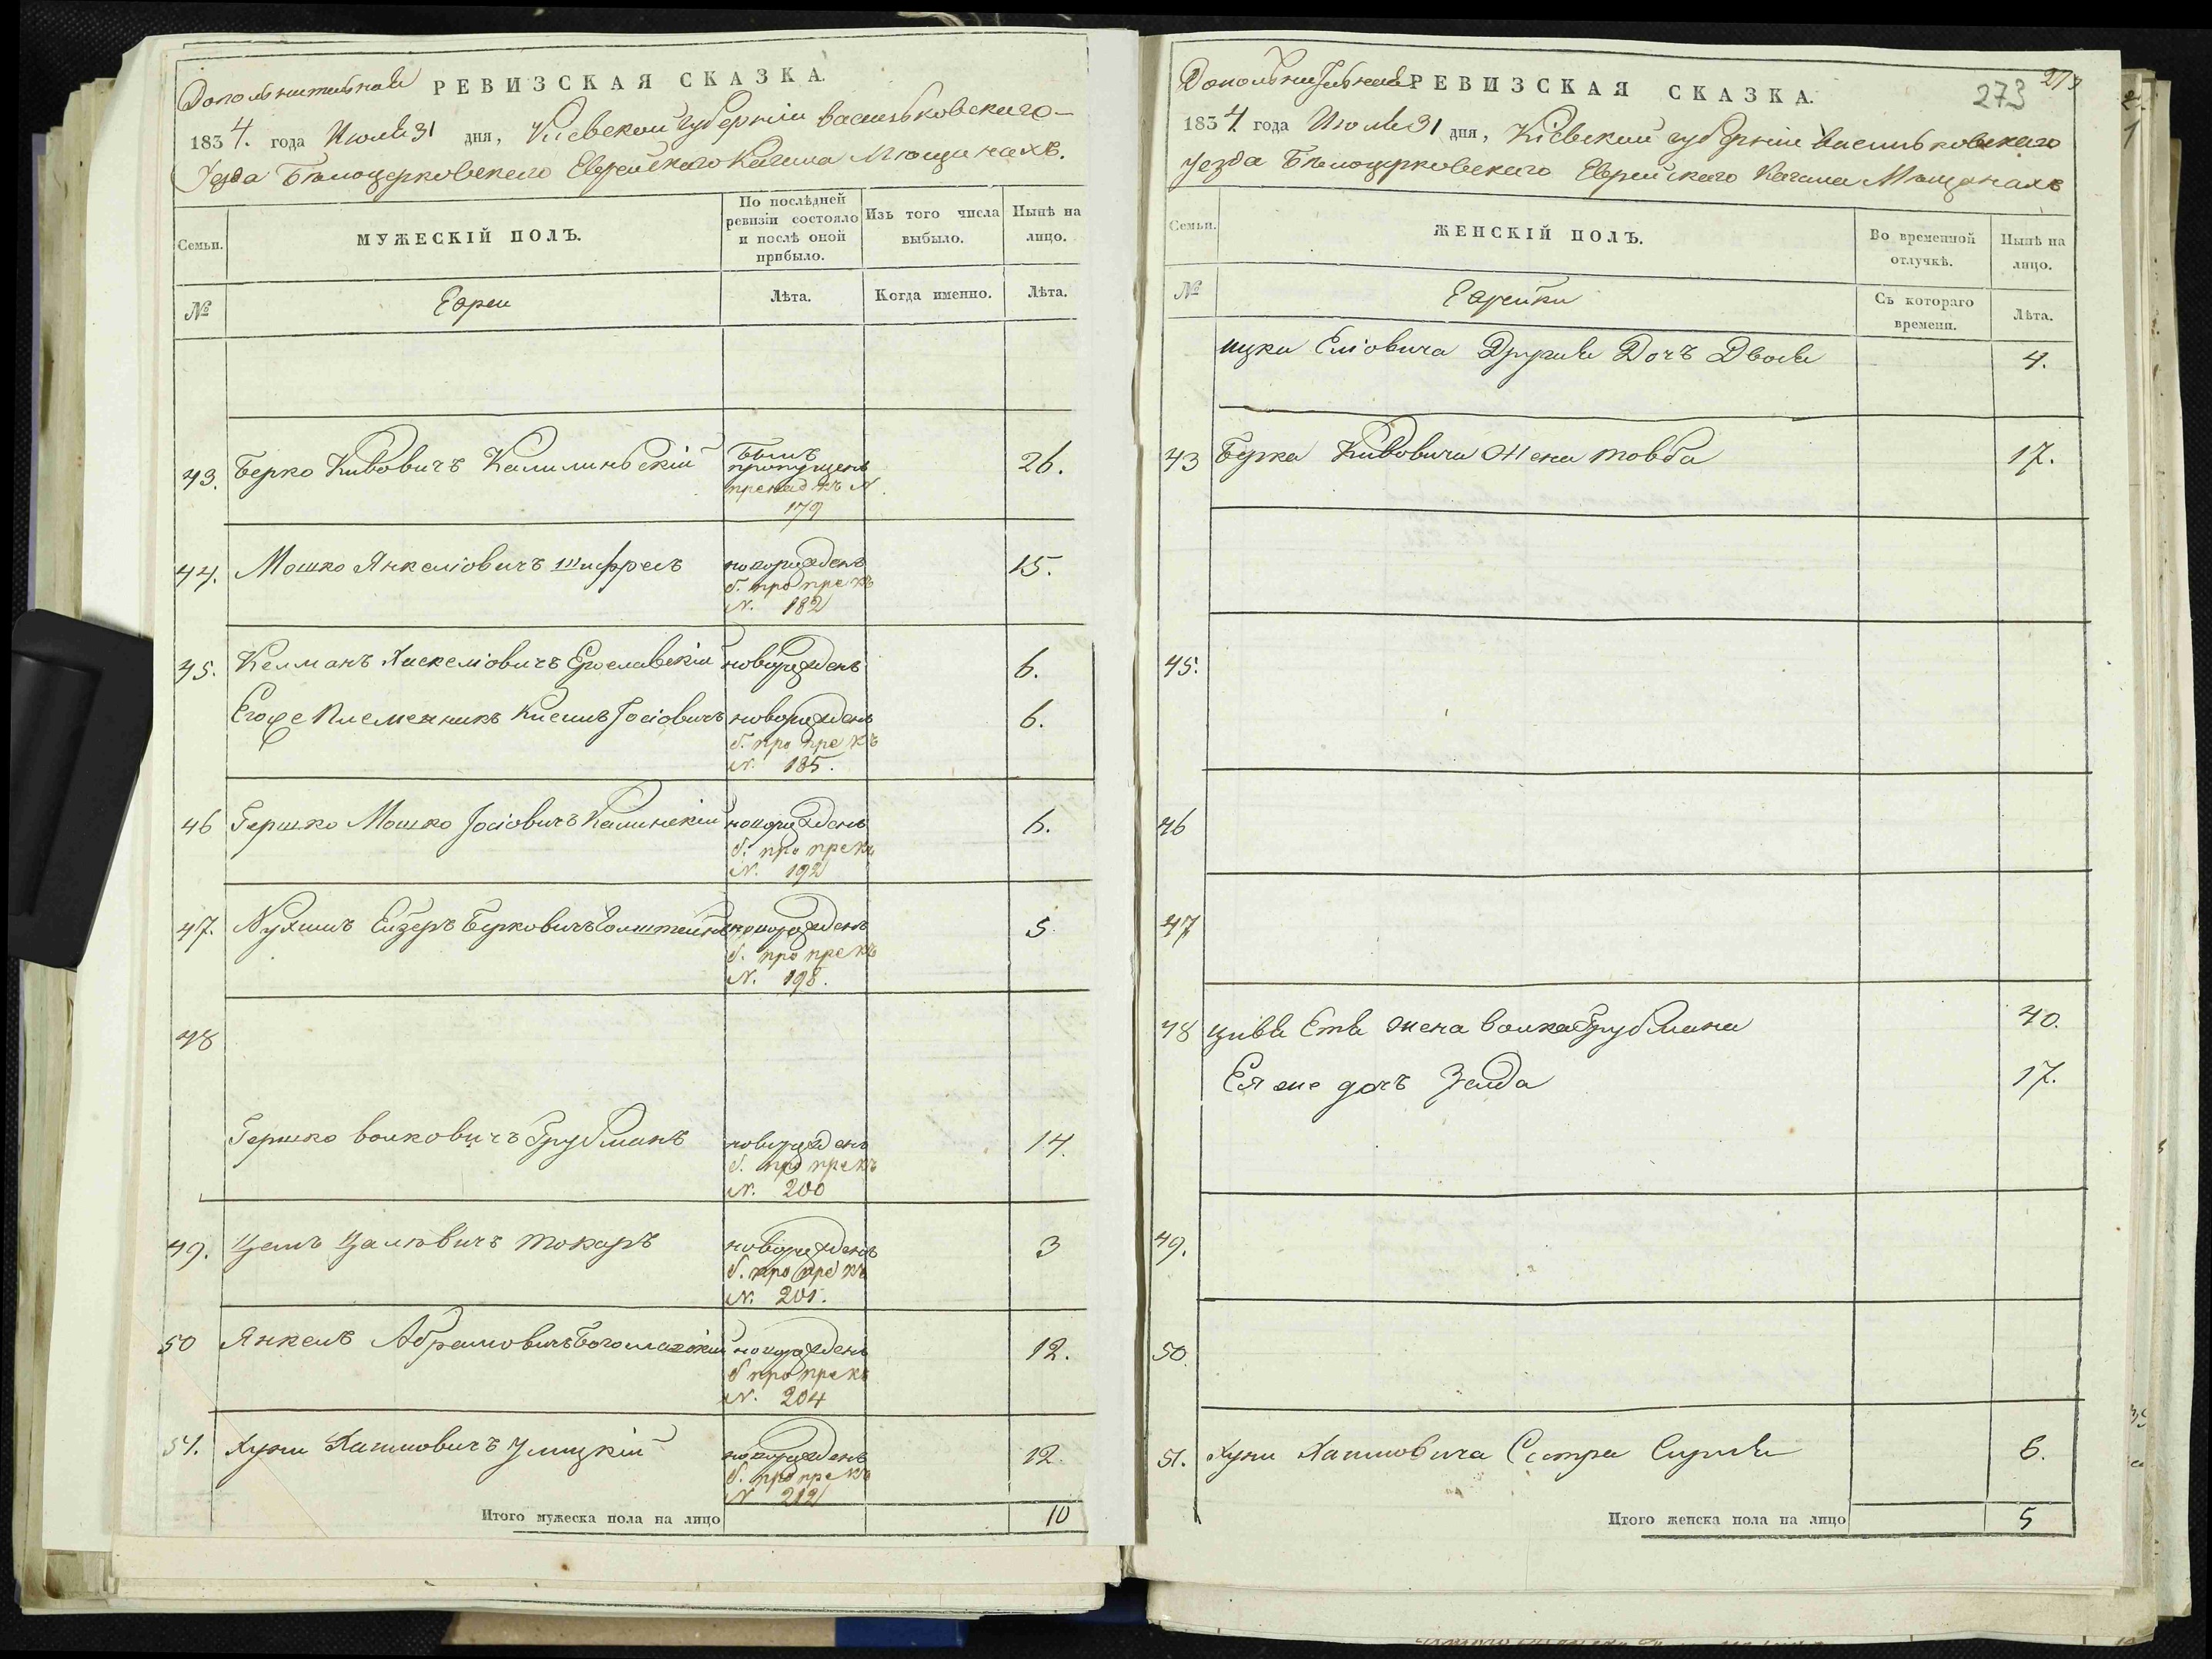 Дополнительная РЕВИЗСКАЯ СКАЗКА.
1834. года Июля 31 дня, Киевской губернии Васильковского
Уезда Белоцерковского Еврейского Кагала Мещанахъ.
Семьи.
МУЖЕСКІЙ ПОЛЪ.
По послѣдней ревизіи состояло и послѣ оной прибыло.
Изъ того числа выбыло.
Нынѣ на лицо.
№
Евреи
Лѣта.
Когда именно.
Лѣта.
43. Берко Кивовичъ Былъ пропущенъ 26.
къ N.
179
44. Мошко Янкеліовичъ Шифрелъ новорожденъ 15.
б. про пре къ
N. 182
45. Келманъ Хаскеліовичъ Ерославскій новорожденъ 6.
Егоже Племенникъ Киселъ Іосіовичъ новорожденъ 6.
б. про пре къ
N. 185.
46 Гершко Мошко Іосіовичъ Калинскій новорожденъ 6.
б. про пре къ
N. 192
47. Нухимъ Ейзеръ Берковичъ Голштейнъ новорожденъ 5
б. про пре къ
N. 198.
48
Гершко Волковичъ Грубманъ новорожденъ 14.
б. про пре къ
N. 200
49. Цалѣвичъ Токаръ новорожденъ 3
б. про пре къ
N. 201.
50 Янкель Абрамовичъ новорожденъ 12.
б про пре къ
N. 204
51. Хуна Хаимовичъ Улицкій новорожденъ 12
б. про пре къ
N 212
Итого мужеска пола на лицо 10
Дополнительная РЕВИЗСКАЯ СКАЗКА.
273
273
1834 года Июля 31 дня, Кіевской губерніи Васильковского
уезда Белоцерковского Еврейского Кагала Мещанахъ
Семьи.
ЖЕНСКІЙ ПОЛЪ.
Во временной отлучкѣ.
Нынѣ на лицо.
№
Еврейки
Съ котораго времени.
Лѣта.
ицка Еліовича Другая Дочъ Двося 4.
43 Берка Кивовича Жена Товба 17.
45.
46
47
48 Цивя Етя жена Волка Грубмана 40.
Ея же дочъ Зелда 17.
49.
50.
51. Хуны Хаимовича Сестра Сурля 6.
Итого женска пола на лицо 5